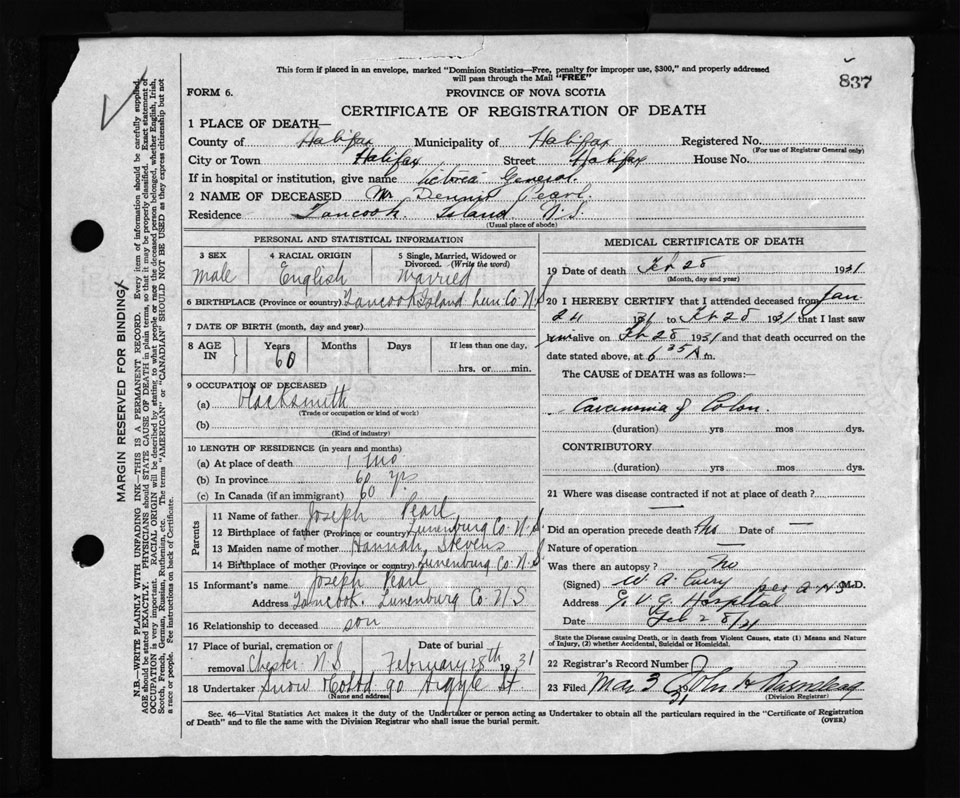 837
This form if placed in an envelope, marked "Dominion Statistics—Free, penalty for improper use, $300," and properly addressed
will pass through the Mail "FREE"
FORM 6.
PROVINCE OF NOVA SCOTIA
CERTIFICATE OF REGISTRATION OF DEATH
1 PLACE OF DEATH—
County of Halifax Municipality of Halifax Registered No.
(For use of Registrar General only)
City or Town Halifax Street Halifax House No.
If in hospital or institution, give name Victoria General
2 NAME OF DECEASED Mr Dennis Pearl.
Residence Tancook Island N.S.
(Usual place of abode)
PERSONAL AND STATISTICAL INFORMATION
3 SEX Male
4 RACIAL ORIGIN English
5 Single, Married, Widowed or Divorced. (Write the word) Married
6 BIRTHPLACE (Province or country) Tancook Island Lun. Co. N.S
7 DATE OF BIRTH (month, day and year)
8 AGE IN Years Months Days If less than one day,
60 hrs. or min.
9 OCCUPATION OF DECEASED
(a) blacksmith
(Trade or occupation or kind of work)
(b)
(Kind of industry)
10 LENGTH OF RESIDENCE (in years and months)
(a) At place of death 1 mo
(b) In province 60 yrs
(c) In Canada (if an immigrant) 60
Parents
11 Name of father Joseph Pearl
12 Birthplace of father (Province or country) Lunenburg Co. N.S.
13 Maiden name of mother Hannah Stevens
14 Birthplace of mother (Province or country) Lunenburg Co. N.S
15 Informant's name Joseph Pearl
Address Tancook, Lunenburg Co N.S
16 Relationship to deceased son
17 Place of burial, cremation or Date of burial
removal Chester N.S February 28th 1931
18 Undertaker Snow 90 Argyle St.
(Name and address)
MEDICAL CERTIFICATE OF DEATH
19 Date of death Feb 28 1931
(Month, day and year)
20 I HEREBY CERTIFY that I attended deceased from Jan
24 1931 to Feb 28 1931 that I last saw
him alive on Feb 28 1931 and that death occurred on the
date stated above, at 6 35 A m.
The CAUSE of DEATH was as follows:—
Carcinoma of Colon.
(duration) yrs mos dys.
CONTRIBUTORY
(duration) yrs mos dys.
21 Where was disease contracted if not at place of death? —
Did an operation precede death No Date of —
Nature of operation —
Was there an autopsy? No
(Signed) W. A. Curry per M.D.
Address V G Hospital
Date Feb 28/31
State the Disease causing Death, or in death from Violent Causes, state (1) Means and Nature
of Injury, (2) whether Accidental, Suicidal or Homicidal.
22 Registrar's Record Number
23 Filed Mar 3 John
(Division Registrar)
Sec. 46—Vital Statistics Act makes it the duty of the Undertaker or person acting as Undertaker to obtain all the particulars required in the "Certificate of Registration
of Death" and to file the same with the Division Registrar who shall issue the burial permit.
(OVER)
MARGIN RESERVED FOR BINDING
N.B.—WRITE PLAINLY WITH UNFADING INK—THIS IS A PERMANENT RECORD. Every item of information should be carefully supplied.
AGE should be stated EXACTLY. PHYSICIANS should STATE CAUSE OF DEATH in plain terms, so that it may be properly classified. Exact statement of
OCCUPATION is very important. RACIAL ORIGIN will be described by stating to what people or race the deceased person belonged, whether English, Irish,
Scotch, French, German, Russian, Ruthenian, etc. The terms "AMERICAN" or "CANADIAN" SHOULD NOT BE USED as they express citizenship but not
a race or people. See instructions on back of Certificate.